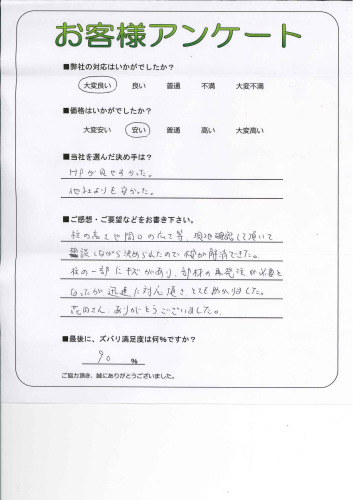 お客様アンケート
■弊社の対応はいかがでしたか?
大変良い 良い 普通 不満 大変不満
■価格はいかがでしたか?
大変安い 安い 普通 高い 大変高い
■当社を選んだ決め手は?
HPが見やすかった。
他社よりも安かった。
■ご感想・ご要望などをお書き下さい。
柱の高さや間口の広さ等、現地確認して頂いて
相談しながら決められたので不安が解消できた。
柱の一部にキズがあり、部材の再発注が必要と
なったが迅速に対応頂きとても助かりました。
さん、ありがとうございました。
■最後に、ズバリ満足度は何%ですか?
90 %
ご協力頂き、誠にありがとうございました。